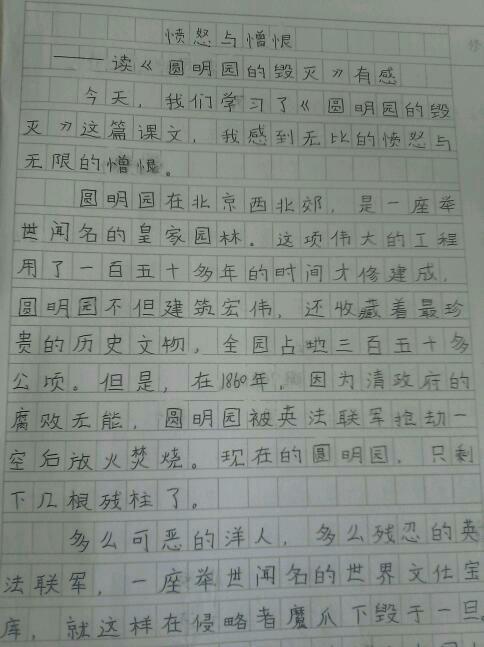 愤怒与憎恨
——读《圆明园的毁灭》有感
今天，我们学习了《圆明园的毁
灭》这篇课文，我感到无比的愤怒与
无限的憎恨。
圆明园在北京西北郊，是一座举
世闻名的皇家园林。这项伟大的工程
用了一百五十多年的时间才修建成，
圆明园不但建筑宏伟，还收藏着最珍
贵的历史文物，全园占地三百五十多
公顷。但是，在1860年，因为清政府的
腐败无能，圆明园被英法联军抢劫一
空后放火焚烧。现在的圆明园，只剩
下几根残柱了。
多么可恶的洋人，多么残忍的英
法联军，一座举世闻名的世界文化宝
库，就这样在侵略者魔爪下毁于一旦。